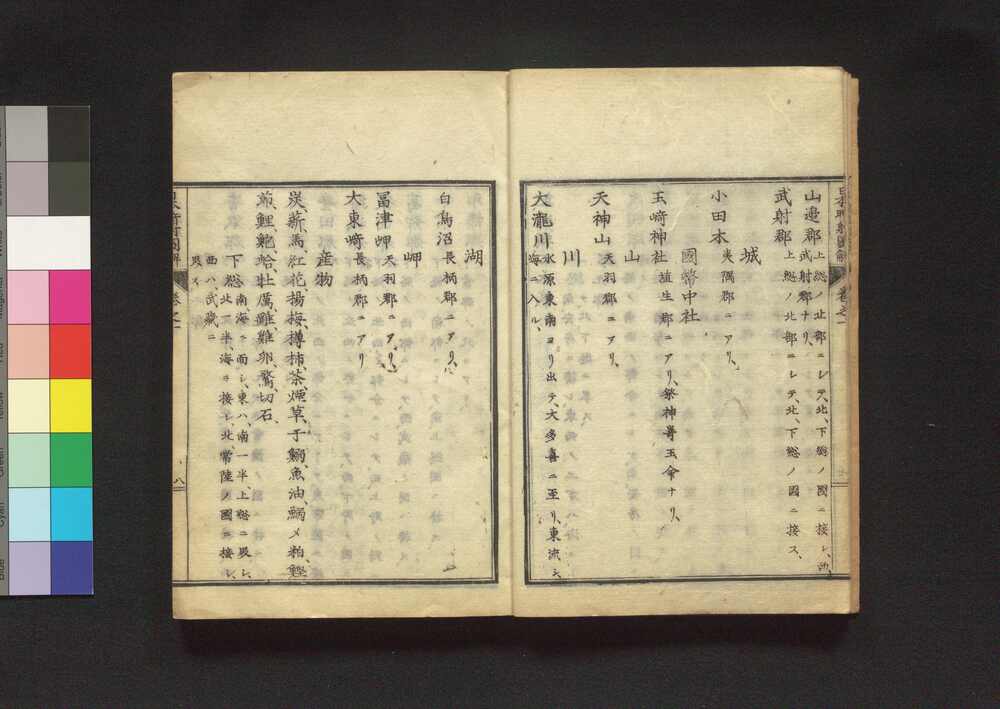 山邉郡 上総ノ北部ニシテ、北、下総ノ國ニ接シ、西、
武射郡ナリ、
武射郡 上総ノ北部ニシテ、北、下総ノ國ニ接ス、
城
小田木 夷隅郡ニアリ、
國幣中社
玉﨑神社 埴生郡ニアリ、祭神華玉命ナリ、
山
天神山 天羽郡ニアリ、
川
大瀧川 水源東南ヨリ出テ、大多喜ニ至リ、東流シ、
海ニ入ル、
湖
白鳥沼 長柄郡ニアリ、
岬
冨津岬 天羽郡ニアリ、
大東﨑 長柄郡ニアリ
産物
炭、薪、馬、紅花、揚梅、樽柿、茶、煙草、干鰯、魚油、鰯〆粕、鰹
節、鯉、鮑、蛤、牡蠣、雞、雞卵、鶩、切石、
下総 南海ニ面シ、東ハ、南一半、上総ニ界シ、
北一半、海ニ接シ、北、常陸ノ國ニ接シ、
西ハ、武藏ニ
界ス
巻之一
八